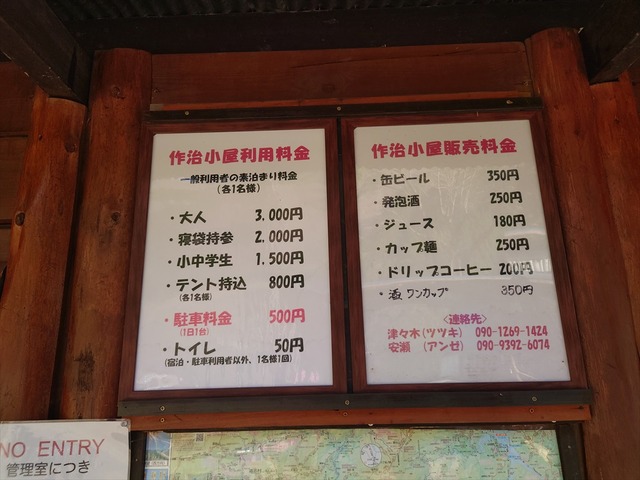 作治小屋利用料金
一般利用者の素泊まり料金
(各1名様)
・大人 3.000円
・寝袋持参 2.000円
・小中学生 1.500円
・テント持込 800円
(各1名様)
・駐車料金 500円
(1日1台)
・トイレ 50円
(宿泊・駐車利用者以外、1名様1回)
作治小屋販売料金
・缶ビール 350円
・発泡酒 250円
・ジュース 180円
・カップ麺 250円
・ドリップコーヒー 200円
・酒 ワンカップ 350円
<連絡先>
津々木(ツツキ) 090-1269-1424
安瀬 (アンゼ) 090-9392-6074
NO ENTRY
管理室につき